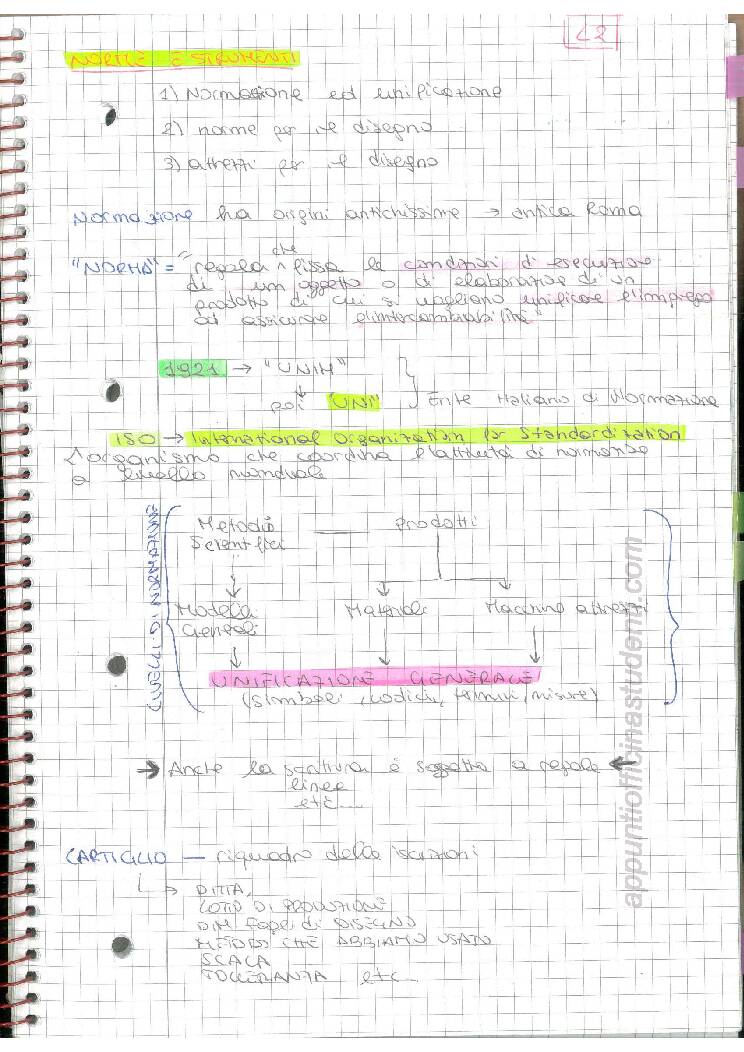 L2
NORME E STRUMENTI
1) Normazione ed unificazione
2) norme per il disegno
3) attrezzi per il disegno
Normazione ha origini antichissime → antica Roma
"NORMA" = "regola ^ che fissa le condizioni di esecuzione
di un oggetto o di elaborazione di un
prodotto di cui si vogliono unificare l'impiego
od assicurare l'intercambiabilità"
1921 → "UNIM"
↓
poi UNI } Ente Italiano di Normazione
ISO → International Organization for Standardization
L'organismo che coordina l'attività di normazione
a livello mondiale
Metodi Scientifici — prodotti
Modelli Generali Materiali Macchine attrezzi
UNIFICAZIONE GENERALE
(simboli, codici, termini, misure)
→ Anche la scrittura è soggetta a regole ←
linee
etc...
CARTIGLIO — riquadro delle iscrizioni
↳ DITTA,
LOTTO DI PRODUZIONE
DIM Fogli di DISEGNO
METODO CHE ABBIAMO USATO
SCALA
TOLLERANZA etc...
appuntiofficinastudenti.com